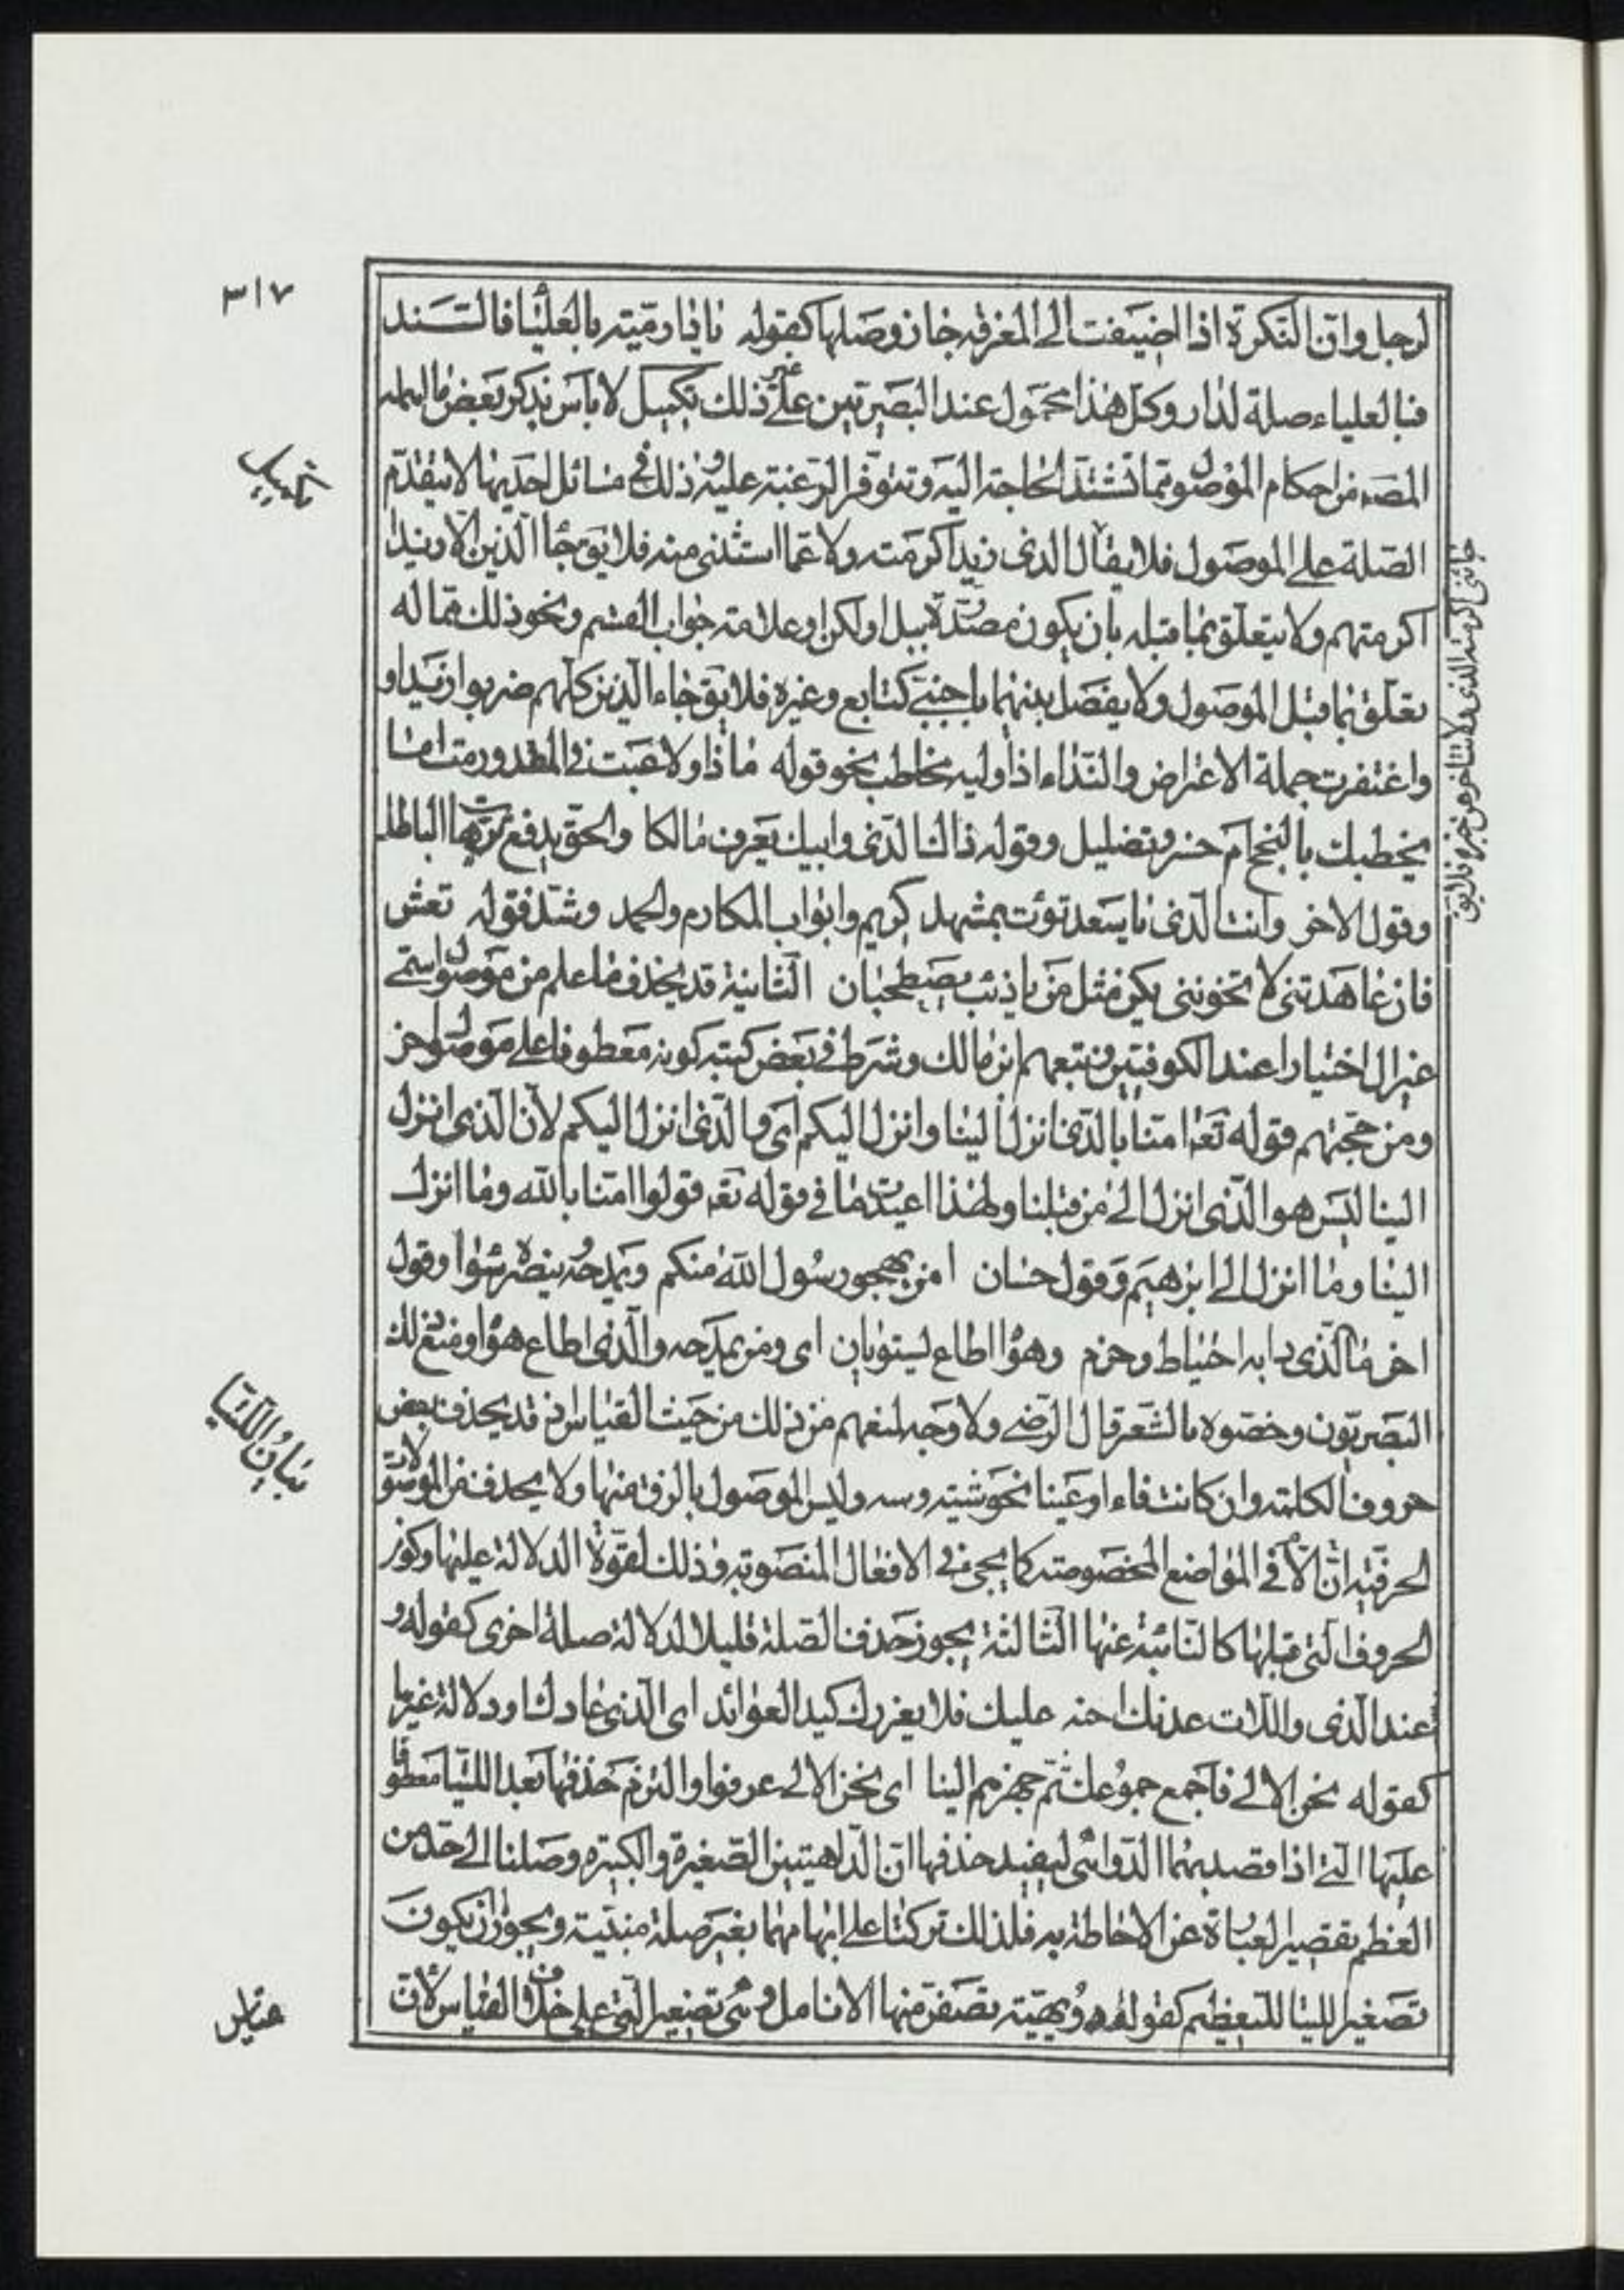 ٣١٧
لرجل وان النكرة اذا اضيفت الى المعرفة جاز وصلها كقوله يا دار مية بالعليا فالسند
فبالعلياء صلة لدار وكل هذا محمول عند البصريين على غير ذلك تكميل لا باس بذكر بعض ما اهمله
المصه من احكام الموصول مما تشتد الحاجة اليه وتتوفر الرغبة عليه وذلك في مسائل احديها لا يتقدم
الصلة على الموصول فلا يقال الذى زيدا كرمته ولا عما استثنى منه فلا يق جا الذين الا زيدا
اكرمتهم ولا يتعلق بما قبله بان يكون مصدرة ببل او لكن او علامة جواب القسم ونحو ذلك مما له
تعلق بما قبل الموصول ولا يفصل بينهما باجنبى كتابع وغيره فلا يق جاء الذين كلهم ضربوا زيدا و
واغتفرت جملة الاعتراض والنداء اذا وليه مخاطب نحو قوله ماذا ولا عتب فى المقدور رمت اما
يخطيك بالنجح ام خسر وتضليل وقوله ذاك الذى وابيك يعرف مالكا والحق يدفع ترهات الباطل
وقول الاخر وانت الذى يا سعد بؤت بمشهد كريم وابواب المكارم والحمد وشذ قوله تعش
فان عاهدتنى لا تخوننى نكن مثل من يا ذئب يصطحبان الثانية قد يحذف ما علم من موصول اسمى
غير ال اختيارا عند الكوفيين وتبعهم ابن مالك وشرط فى بعض كتبه كونه معطوفا على موصول اخر
ومن حججهم قوله تعه امنا بالذى انزل الينا وانزل اليكم اى والذى انزل اليكم لان الذى انزل
الينا ليس هو الذى انزل الى من قبلنا ولهذا اعيدت ما فى قوله تعه قولوا امنا بالله وما انزل
الينا وما انزل الى ابرهيم وقول حسان امن يهجو رسول الله منكم ويمدحه وينصره سواء وقول
اخر ما الذى دابه احتياط وحزم وهواه اطاع يستويان اى ومن يمدحه والذى اطاع هواه ومنع ذلك
البصريون وخصوه بالشعر قال الرضى ولا وجه لمنعهم من ذلك من حيث القياس اذ قد يحذف بعض
حروف الكلمة وان كانت فاء او عينا نحو شية وسه وليس الموصول بالزق منها ولا يحذف من الموصولات
الحرفية الا ان فى المواضع المخصوصة كما يجى فى الافعال المنصوبة وذلك لقوة الدلالة عليها وكون
الحروف التى قبلها كالنائبة عنها الثالثة يجوز حذف الصلة قليلا لدلالة صلة اخرى كقوله و
عند الذى واللات عدنك احنه عليك فلا يغررك كيد العوائد اى الذى عادك او دلالة غيرها
كقوله نحن الالى فاجمع جموعك ثم جهزهم الينا اى نحن الالى عرفوا والتزم حذفها بعد اللتيا معطوفا
عليها التى اذا قصد بهما الدواهى ليفيد حذفها ان الداهيتين الصغيرة والكبيرة وصلنا الى حد من
العظم يقصر العبارة عن الاحاطة به فلذلك تركتا على ابهامهما بغير صلة مبنية ويجوز ان يكون
تصغير اللتيا للتعظيم كقوله دويهية تصفر منها الانامل وهى تصغير التى على خلاف القياس لان
تكميل
بيان اللتيا
قياس